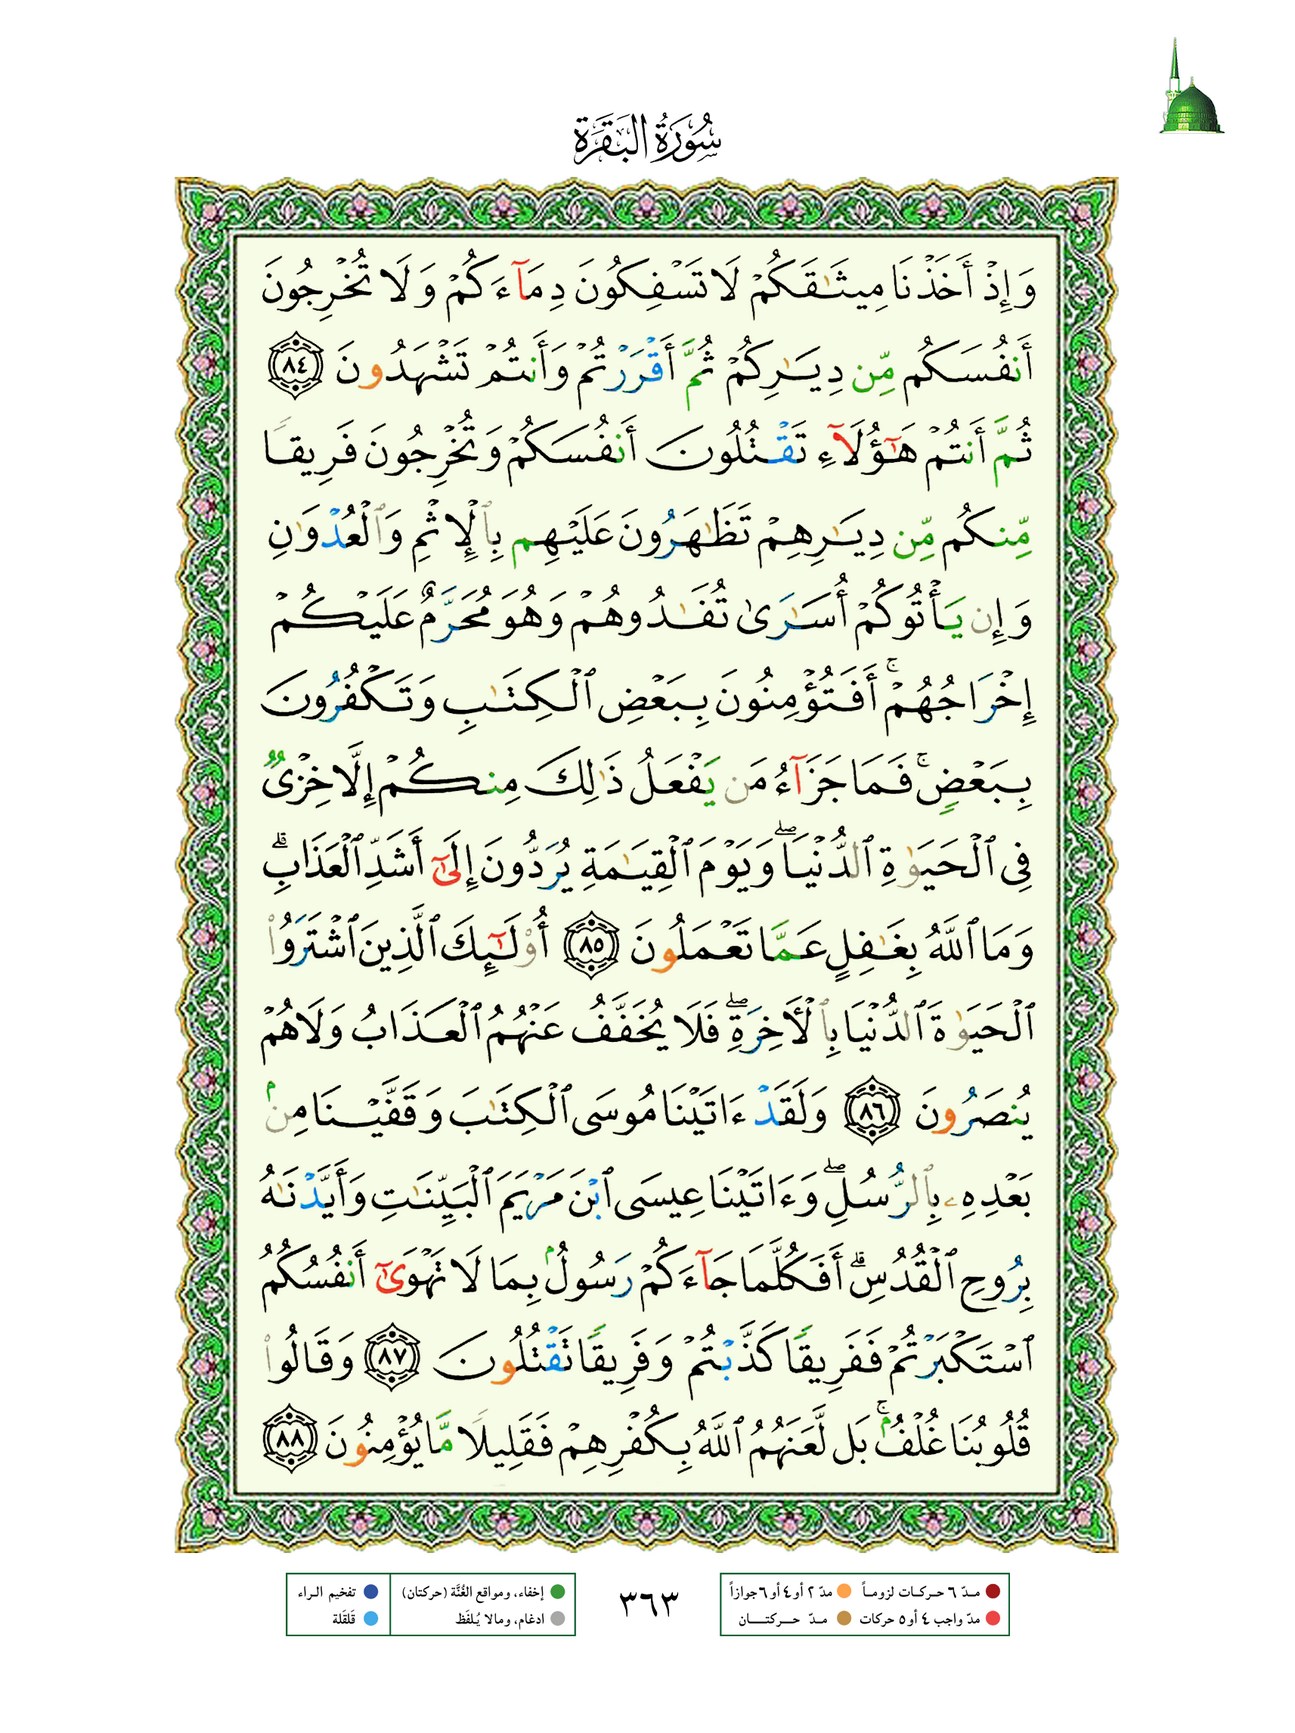 سُورَةُ البَقَرَة
وَإِذۡ أَخَذۡنَا مِيثَٰقَكُمۡ لَا تَسۡفِكُونَ دِمَآءَكُمۡ وَلَا تُخۡرِجُونَ
أَنفُسَكُم مِّن دِيَٰرِكُمۡ ثُمَّ أَقۡرَرۡتُمۡ وَأَنتُمۡ تَشۡهَدُونَ ٨٤
ثُمَّ أَنتُمۡ هَٰٓؤُلَآءِ تَقۡتُلُونَ أَنفُسَكُمۡ وَتُخۡرِجُونَ فَرِيقٗا
مِّنكُم مِّن دِيَٰرِهِمۡ تَظَٰهَرُونَ عَلَيۡهِم بِٱلۡإِثۡمِ وَٱلۡعُدۡوَٰنِ
وَإِن يَأۡتُوكُمۡ أُسَٰرَىٰ تُفَٰدُوهُمۡ وَهُوَ مُحَرَّمٌ عَلَيۡكُمۡ
إِخۡرَاجُهُمۡۚ أَفَتُؤۡمِنُونَ بِبَعۡضِ ٱلۡكِتَٰبِ وَتَكۡفُرُونَ
بِبَعۡضٖۚ فَمَا جَزَآءُ مَن يَفۡعَلُ ذَٰلِكَ مِنكُمۡ إِلَّا خِزۡيٞ
فِي ٱلۡحَيَوٰةِ ٱلدُّنۡيَاۖ وَيَوۡمَ ٱلۡقِيَٰمَةِ يُرَدُّونَ إِلَىٰٓ أَشَدِّ ٱلۡعَذَابِۗ
وَمَا ٱللَّهُ بِغَٰفِلٍ عَمَّا تَعۡمَلُونَ ٨٥ أُوْلَٰٓئِكَ ٱلَّذِينَ ٱشۡتَرَوُاْ
ٱلۡحَيَوٰةَ ٱلدُّنۡيَا بِٱلۡأٓخِرَةِۖ فَلَا يُخَفَّفُ عَنۡهُمُ ٱلۡعَذَابُ وَلَا هُمۡ
يُنصَرُونَ ٨٦ وَلَقَدۡ ءَاتَيۡنَا مُوسَى ٱلۡكِتَٰبَ وَقَفَّيۡنَا مِنۢ
بَعۡدِهِۦ بِٱلرُّسُلِۖ وَءَاتَيۡنَا عِيسَى ٱبۡنَ مَرۡيَمَ ٱلۡبَيِّنَٰتِ وَأَيَّدۡنَٰهُ
بِرُوحِ ٱلۡقُدُسِۗ أَفَكُلَّمَا جَآءَكُمۡ رَسُولُۢ بِمَا لَا تَهۡوَىٰٓ أَنفُسُكُمُ
ٱسۡتَكۡبَرۡتُمۡ فَفَرِيقٗا كَذَّبۡتُمۡ وَفَرِيقٗا تَقۡتُلُونَ ٨٧ وَقَالُواْ
قُلُوبُنَا غُلۡفُۢۚ بَل لَّعَنَهُمُ ٱللَّهُ بِكُفۡرِهِمۡ فَقَلِيلٗا مَّا يُؤۡمِنُونَ ٨٨
مدّ ٦ حركات لزوماً مدّ ٢ أو ٤ أو ٦ جوازاً
مدّ واجب ٤ أو ٥ حركات مدّ حركتان
٣٦٣
إخفاء، ومواقع الغُنَّة (حركتان) تفخيم الراء
ادغام، ومالا يُلفَظ قَلقَلة